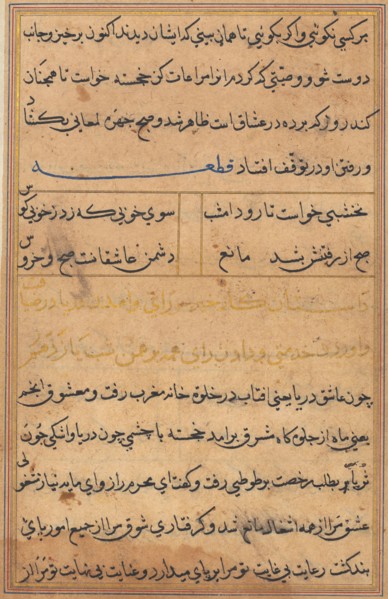 هر کسی نکوئی واکر بکوئی تا همان بینی که ایشان دیدند اکنون برخیز و جانب
دوست شو و وصیتی که کردم از امراعات کن خجسته خواست تا همچنان
کند روز که پرده در عشاق است ظاهر شد و صبح چهره لمعانی بکشاد
و رفتن او در توقف افتاد قطعه
نخشبی خواست تا رود امشب سوی خوبی که زد ز خوبی کوس
صبح از رفتنش بشد مانع دشمن عاشقانست صبح و خروس
داستان
چون عاشق دریا یعنی افتاب در خلوة خانه مغرب رفت و معشوق انجم
یعنی ماه از جلوه کاه مشرق برامد خجسته با چشمی چون دریا و اشکی چون
ثریا بطلب رخصت بر طوطی رفت و کفت ای محرم راز وای مایه نیاز
عشق مرا از همه اشغال مانع شد و کرفتاری شوق مرا از جمیع امور پای
بند کشت رعایت بی غایت تو مرا بر پای میدارد و عنایت بی نهایت تو مرا از